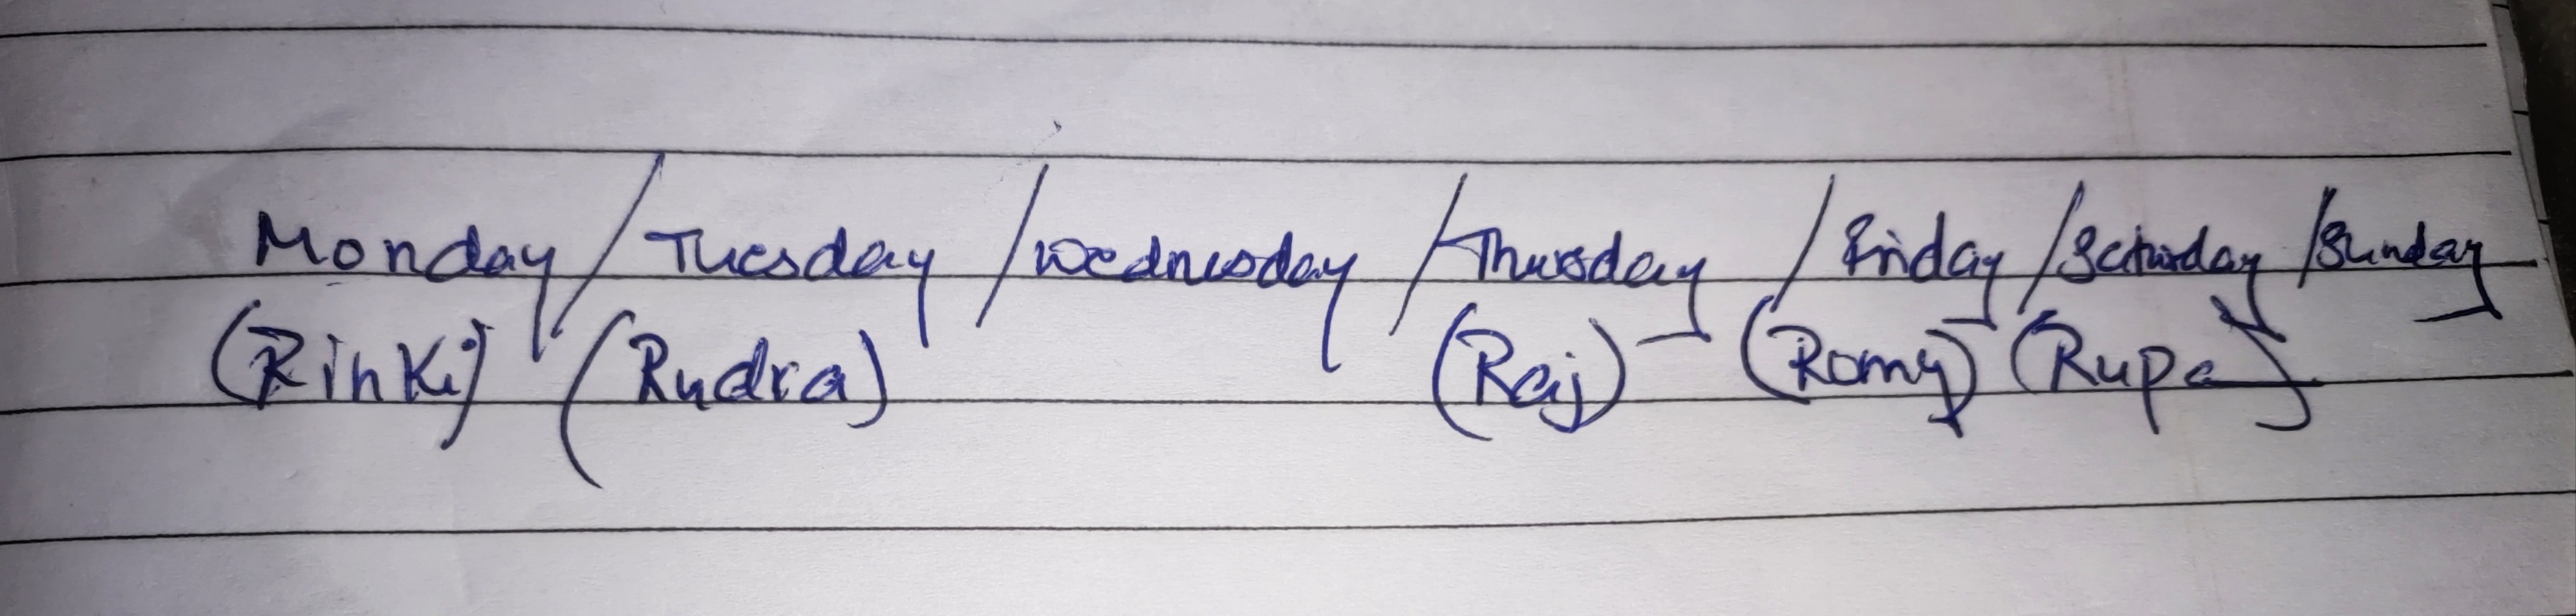 Monday / Tuesday / Wednesday / Thursday / Friday / Saturday / Sunday
(Rinki) (Rudra) (Raj) (Romy) (Rupa)